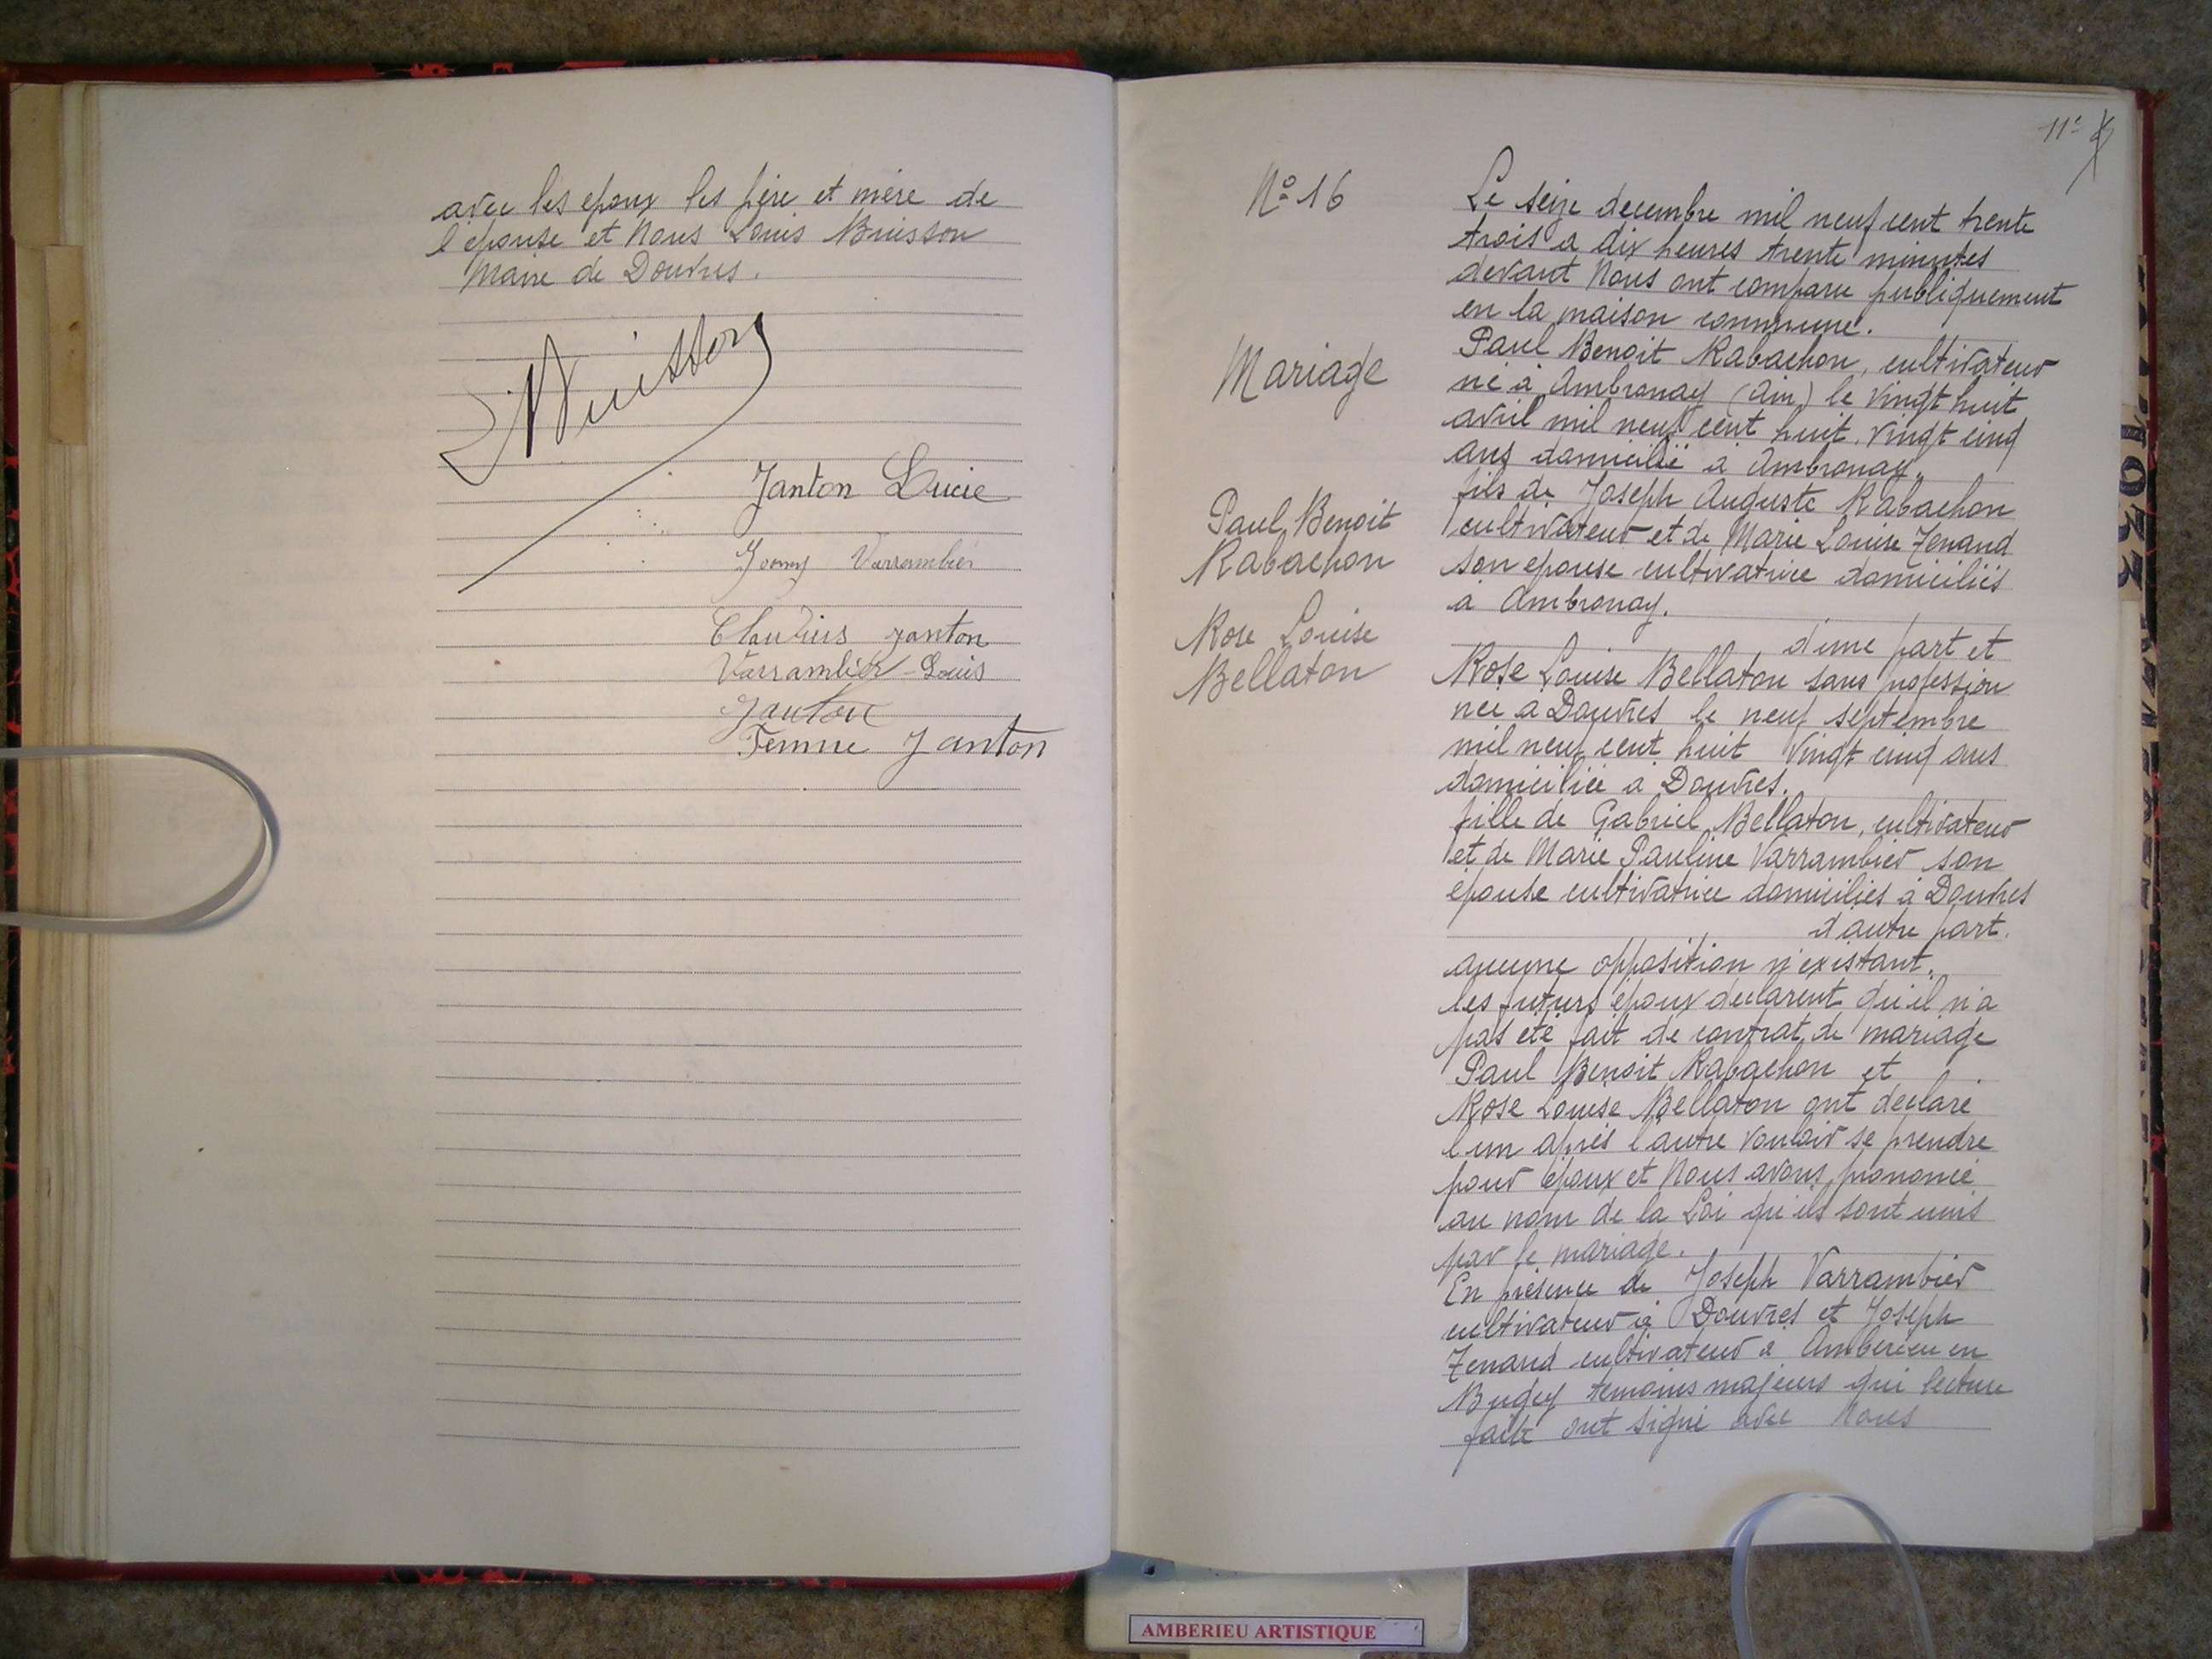 avec les epoux les père et mère de
l'épouse et Nous Louis Buisson
Maire de Douvres.
LBuisson
Janton Lucie
Varrambier
Claudius Janton
Varrambier Louis
Janton
Femme Janton
11e
No 16
Mariage
Paul Benoit
Rabachon
Rose Louise
Bellaton
Le seize decembre mil neuf cent trente
trois a dix heures trente minutes
devant Nous ont comparu publiquement
en la maison commune.
Paul Benoit Rabachon, cultivateur
né à Ambronay (Ain) le vingt huit
avril mil neuf cent huit. vingt cinq
ans domicilié à Ambronay.
fils de Joseph Auguste Rabachon
cultivateur et de Marie Louise Tenand
son epouse cultivatrice domiciliés
à Ambronay.
d'une part et
Rose Louise Bellaton sans profession
née a Douvres le neuf septembre
mil neuf cent huit vingt cinq ans
domiciliée a Douvres.
fille de Gabriel Bellaton, cultivateur
et de Marie Pauline Varrambier son
épouse cultivatrice domiciliés à Douvres
d'autre part.
aucune opposition n'existant.
les futurs époux declarent qu'il n'a
pas été fait de contrat de mariage
Paul Benoit Rabachon et
Rose Louise Bellaton ont declaré
l'un après l'autre vouloir se prendre
pour époux et Nous avons prononcé
au nom de la Loi qu'ils sont unis
par le mariage.
En présence de Joseph Varrambier
cultivateur à Douvres et Joseph
Tenand cultivateur à Ambérieu en
Bugey témoins majeurs qui lecture
faite ont signé avec Nous
1933
AMBERIEU ARTISTIQUE